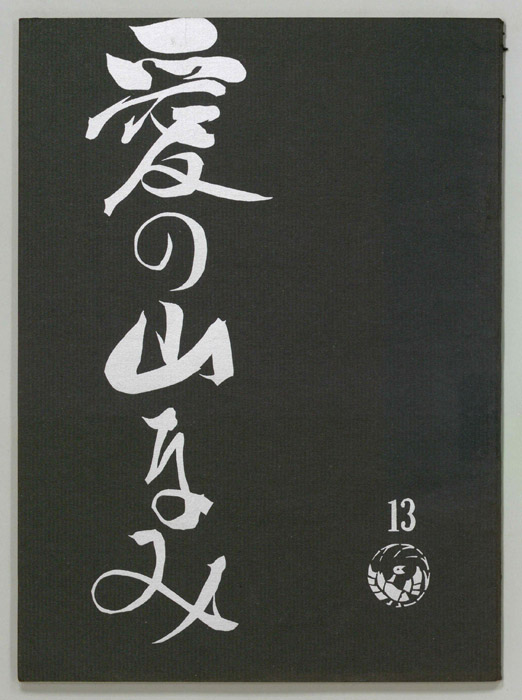 愛の山なみ
13